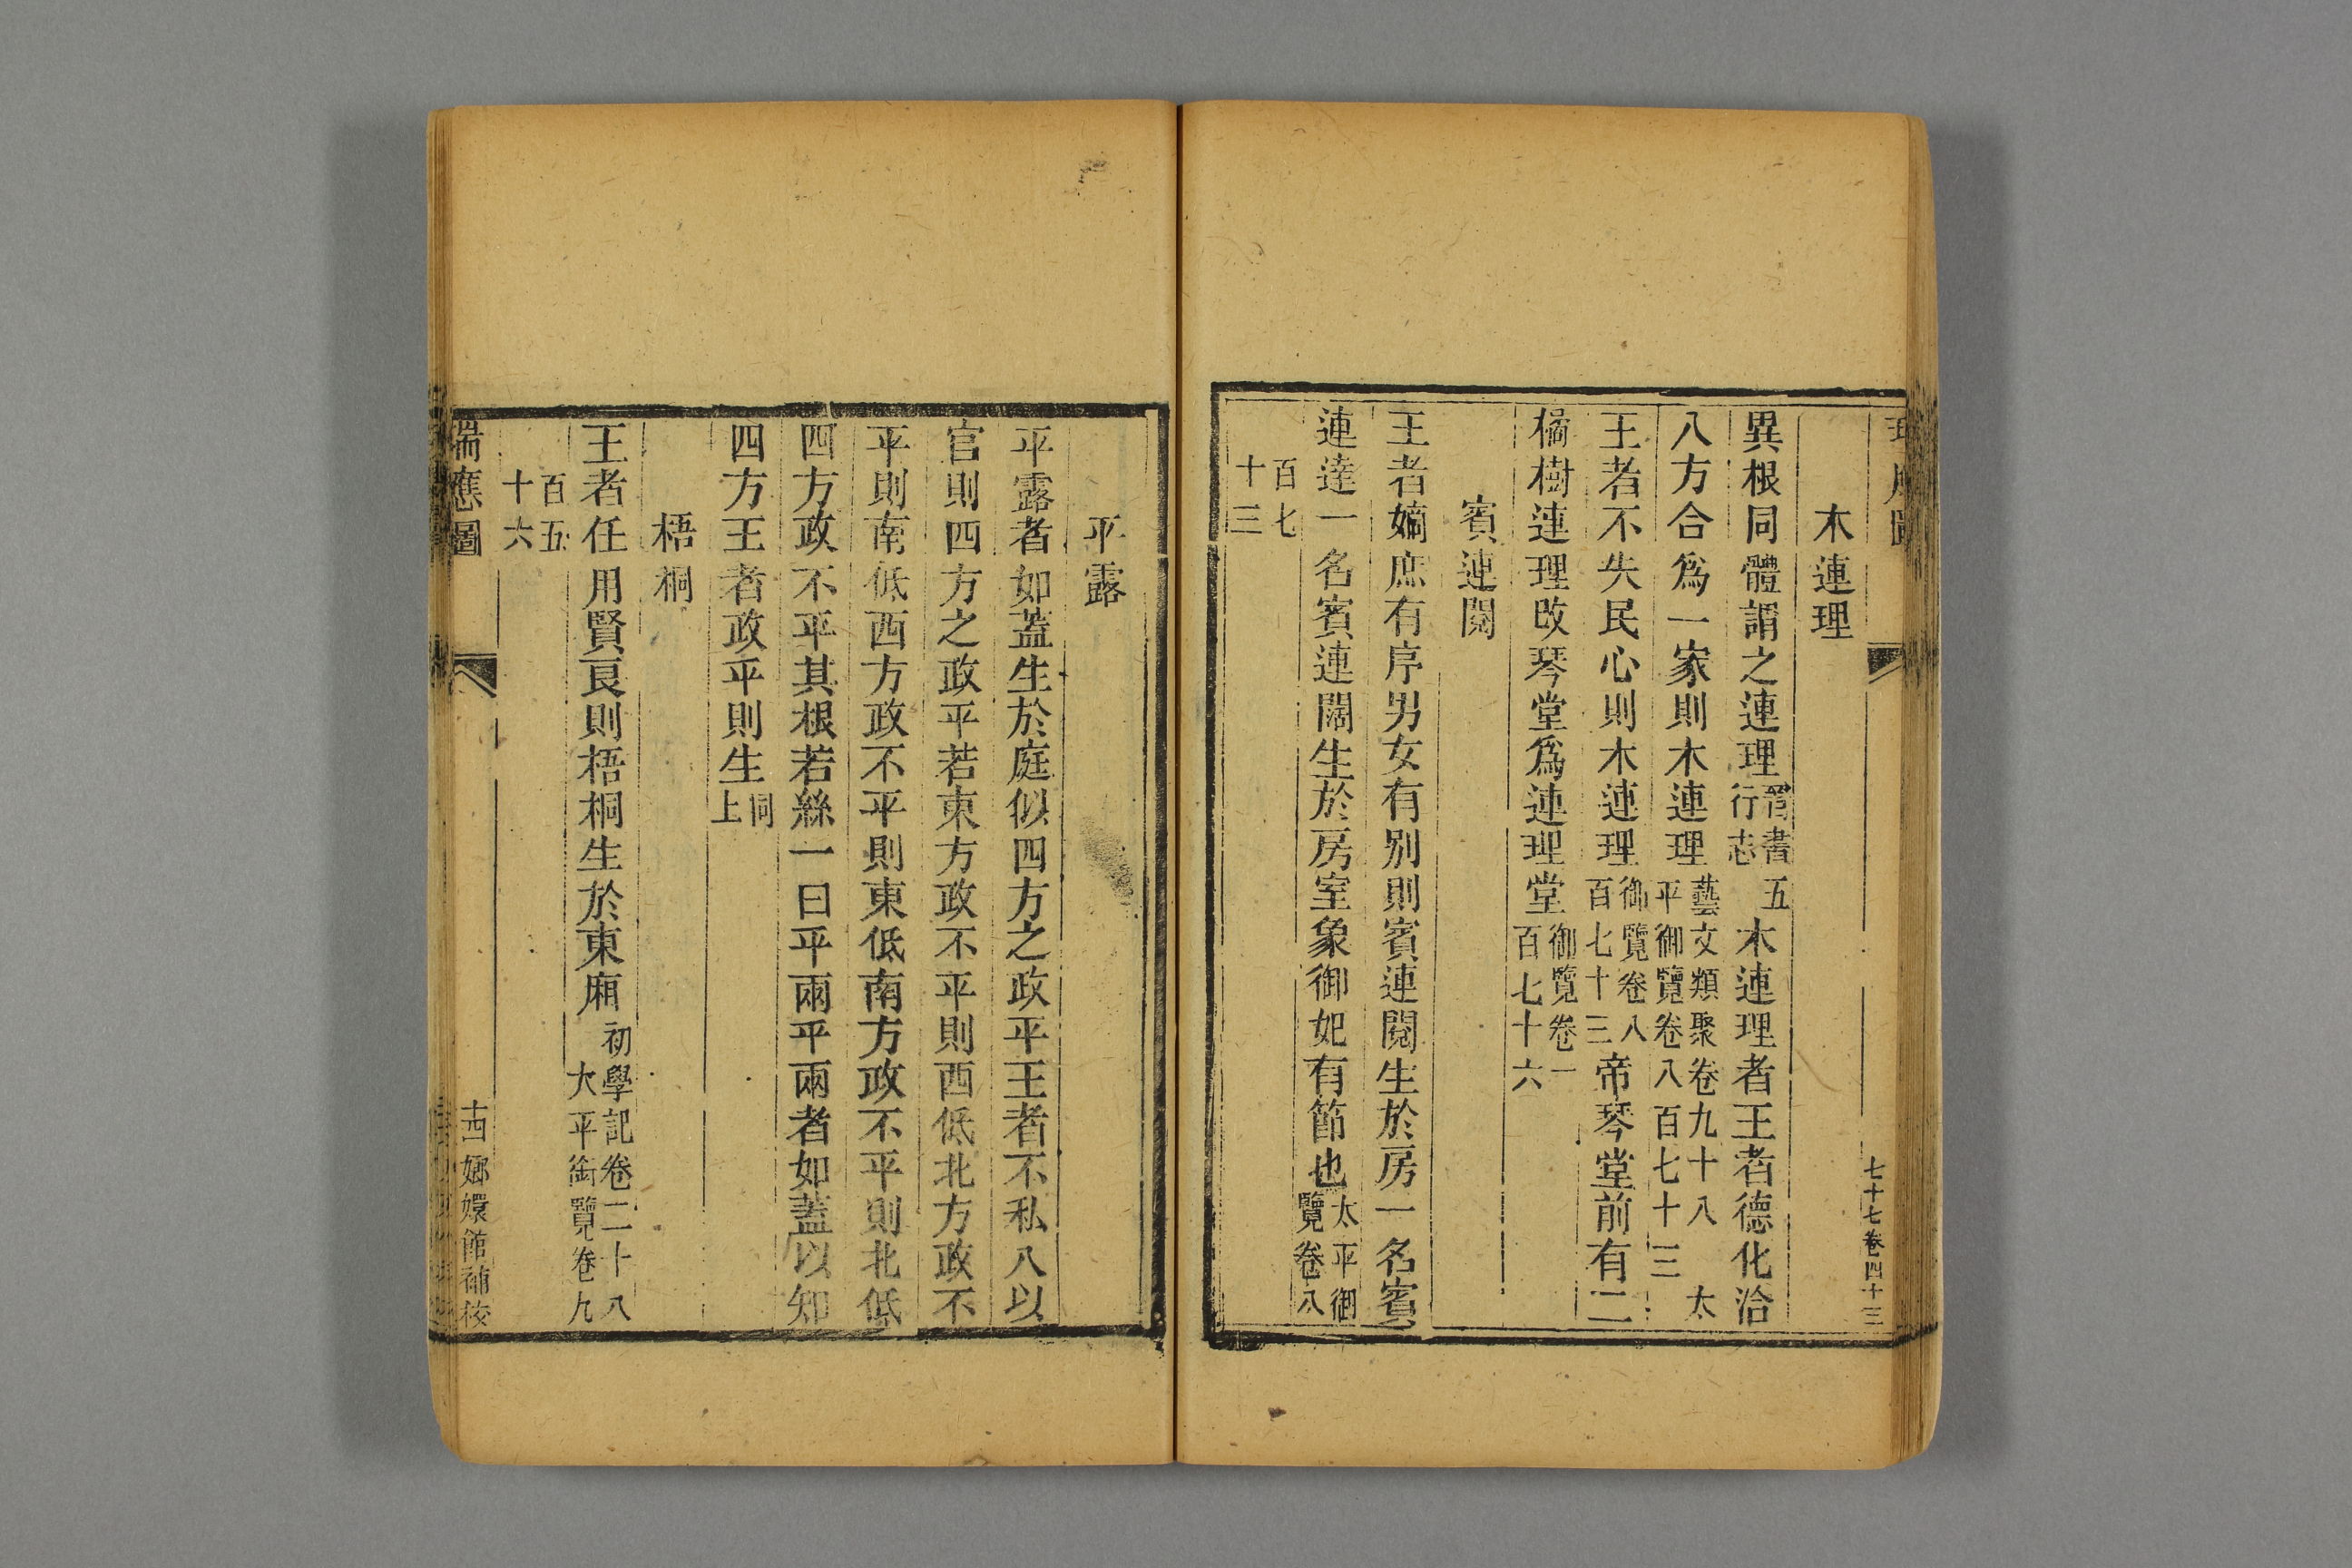 七十七卷四十三
木連理
異根同體謂之連理晉書五行志木連理者王者德化洽
八方合爲一家則木連理藝文類聚卷九十八太平御覽卷八百七十三
王者不失民心則木連理御覽卷八百七十三帝琴堂前有二
橘樹連理改琴堂爲連理堂御覽卷一百七十六
賓連閱
王者嫡庶有序男女有别則賓連閱生於房一名賓
連達一名賓連闊生於房室象御妃有節也太平御覽卷八
百七十三
平露
平露者如蓋生於庭似四方之政平王者不私八以
官則四方之政平若東方政不平則西低北方政不
平則南低西方政不平則東低南方政不平則北低
四方政不平其根若絲一曰平兩平兩者如蓋以知
四方王者政平則生同上
梧桐
王者任用賢良則梧桐生於東廂初學記卷二十八大平御覽卷九
百五十六
瑞應圖 十四 嫏嬛館補校